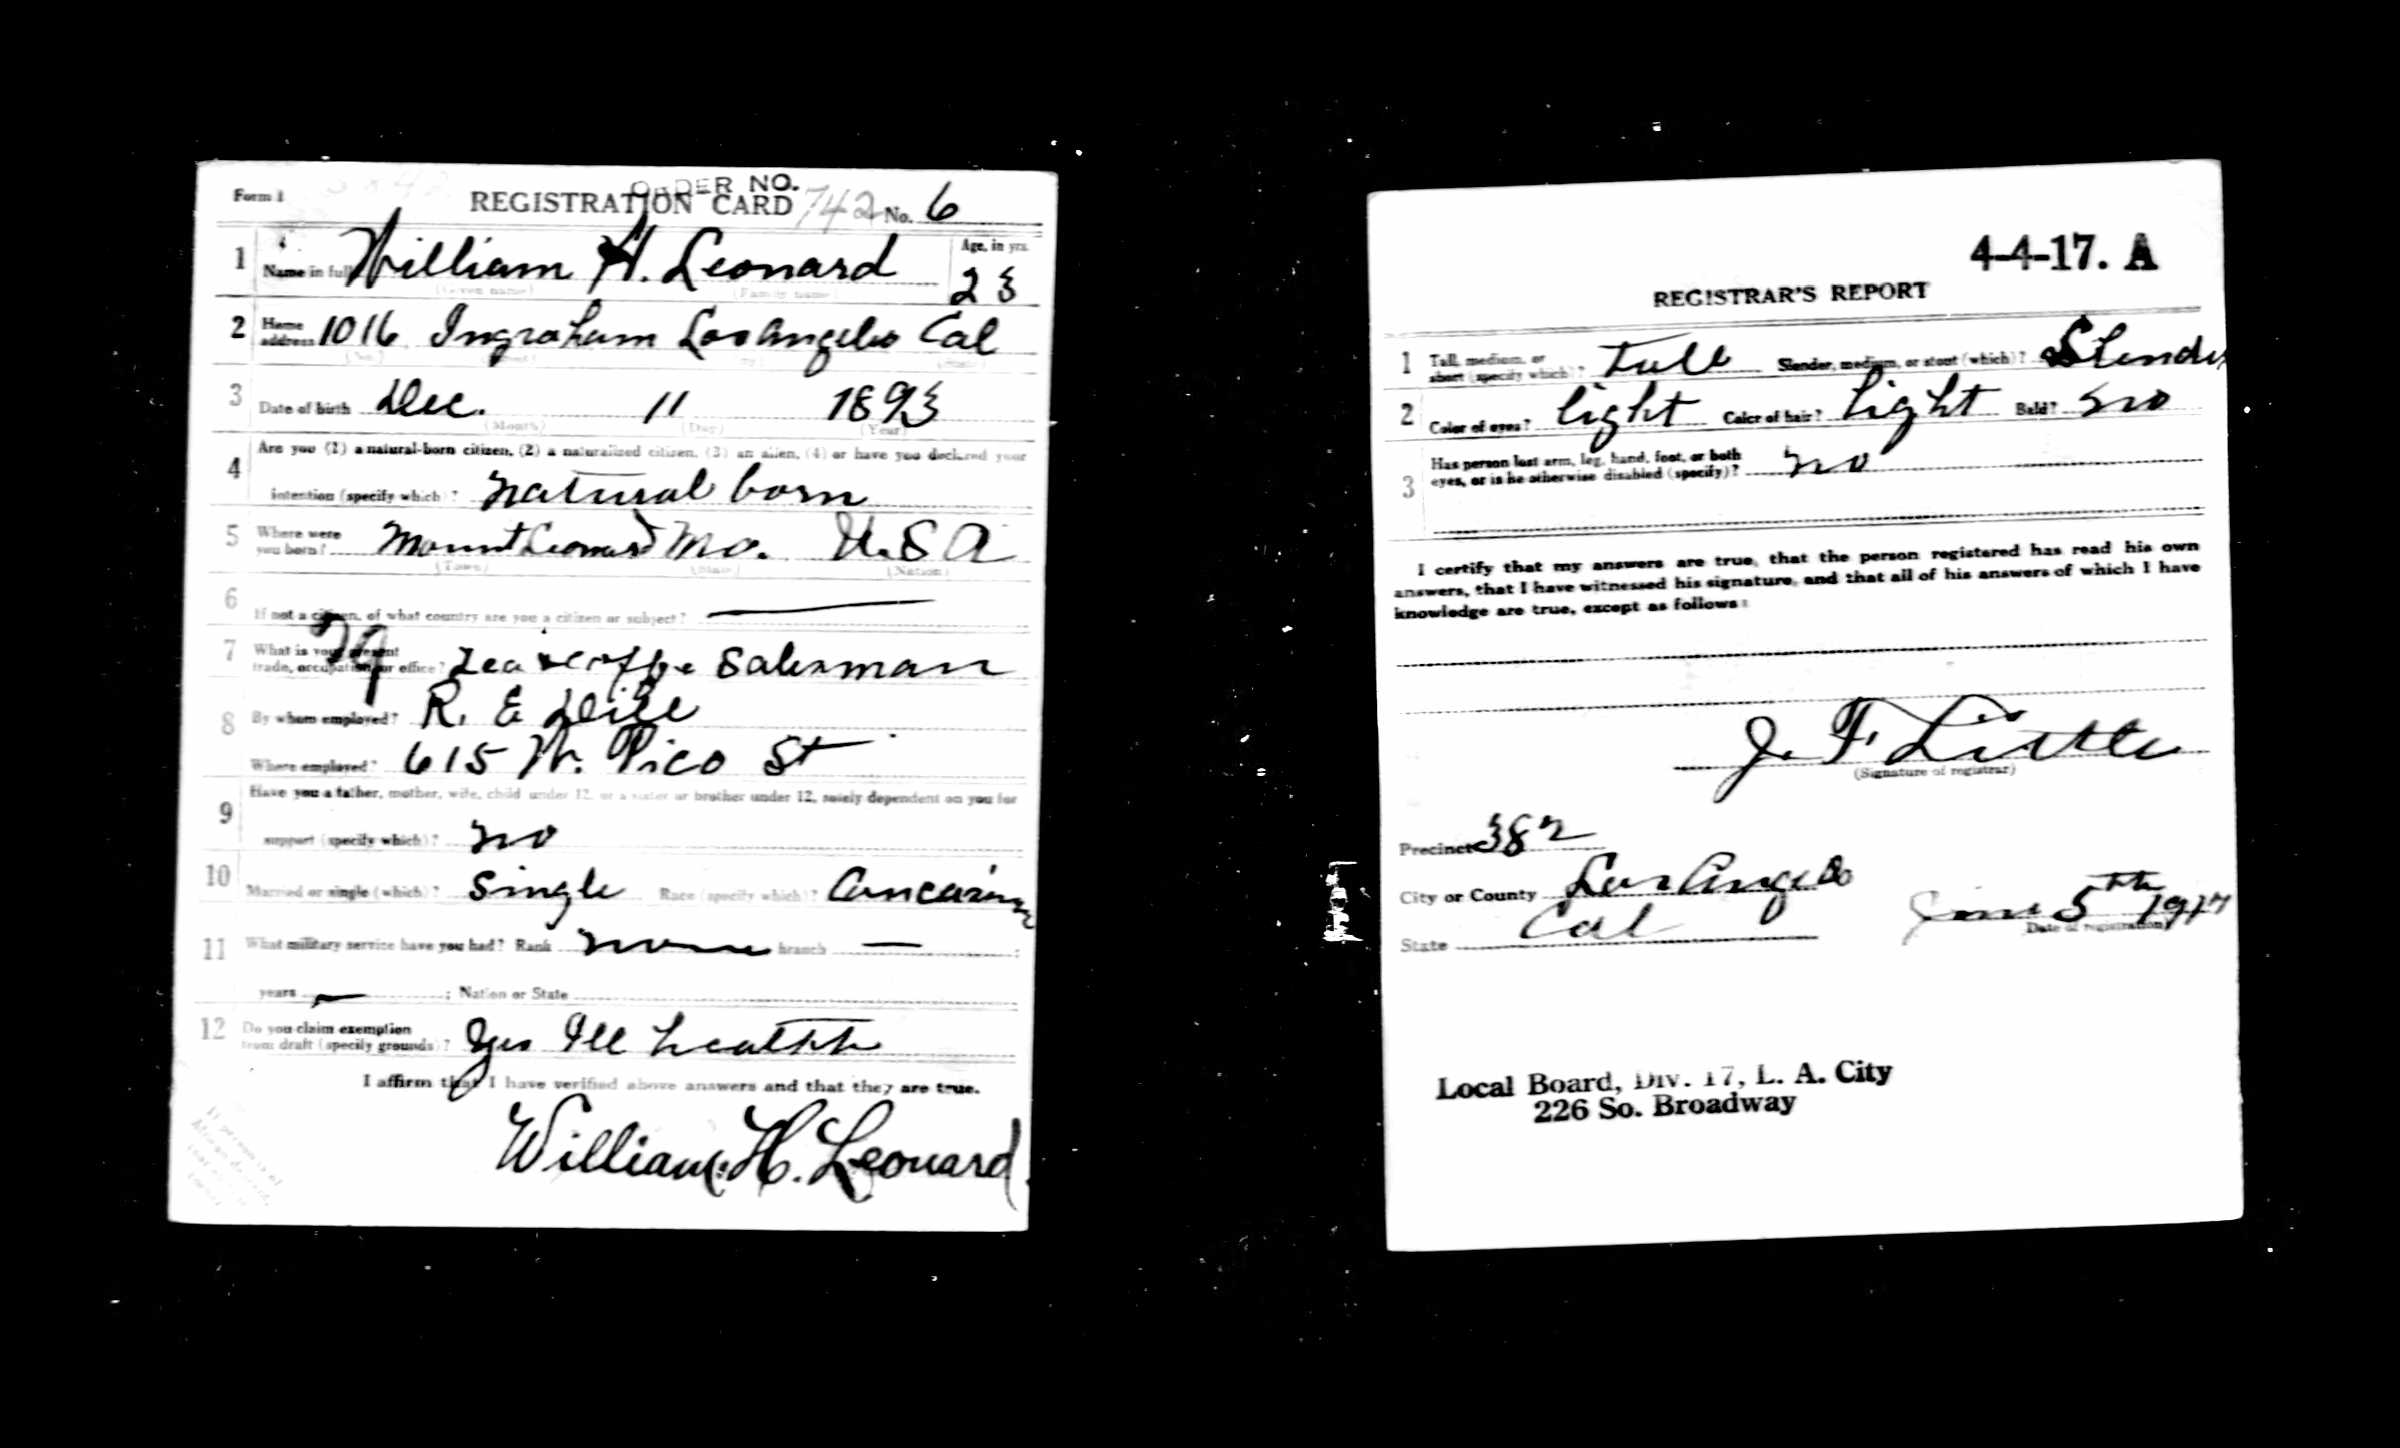 Form 1
ORDER NO.
REGISTRATION CARD 742 No. 6
1 Name in full William H. Leonard Age, in yrs. 23
(Given name) (Family name)
2 Home address 1016 Ingraham Los Angeles Cal
(No.) (Street) (City) (State)
3 Date of birth Dec. 11 1893
(Month) (Day) (Year)
4 Are you (1) a natural-born citizen, (2) a naturalized citizen, (3) an alien, (4) or have you declared your
intention (specify which)? natural born
5 Where were you born? Mount Leonard Mo. U.S A
(Town) (State) (Nation)
6 If not a citizen, of what country are you a citizen or subject? —
7 What is your present
trade, occupation, or office? Tea & Coffee Salesman
8 By whom employed? R. E.
Where employed? 615 W. Pico St
9 Have you a father, mother, wife, child under 12, or a sister or brother under 12, solely dependent on you for
support (specify which)? no
10 Married or single (which)? Single Race (specify which)?
11 What military service have you had? Rank none branch — ;
years — ; Nation or State
12 Do you claim exemption
from draft (specify grounds)? Yes Ill health
I affirm that I have verified above answers and that they are true.
William H. Leonard
4-4-17. A
REGISTRAR'S REPORT
1 Tall, medium, or
short (specify which)? Tall Slender, medium, or stout (which)? Slender
2 Color of eyes? light Color of hair? light Bald? no
3 Has person lost arm, leg, hand, foot, or both
eyes, or is he otherwise disabled (specify)? no
I certify that my answers are true, that the person registered has read his own
answers, that I have witnessed his signature, and that all of his answers of which I have
knowledge are true, except as follows:
J. F. Little
(Signature of registrar)
Precinct 382
City or County Los Angeles
State Cal
June 5th 1917
Date of registration
Local Board, Div. 17, L. A. City
226 So. Broadway